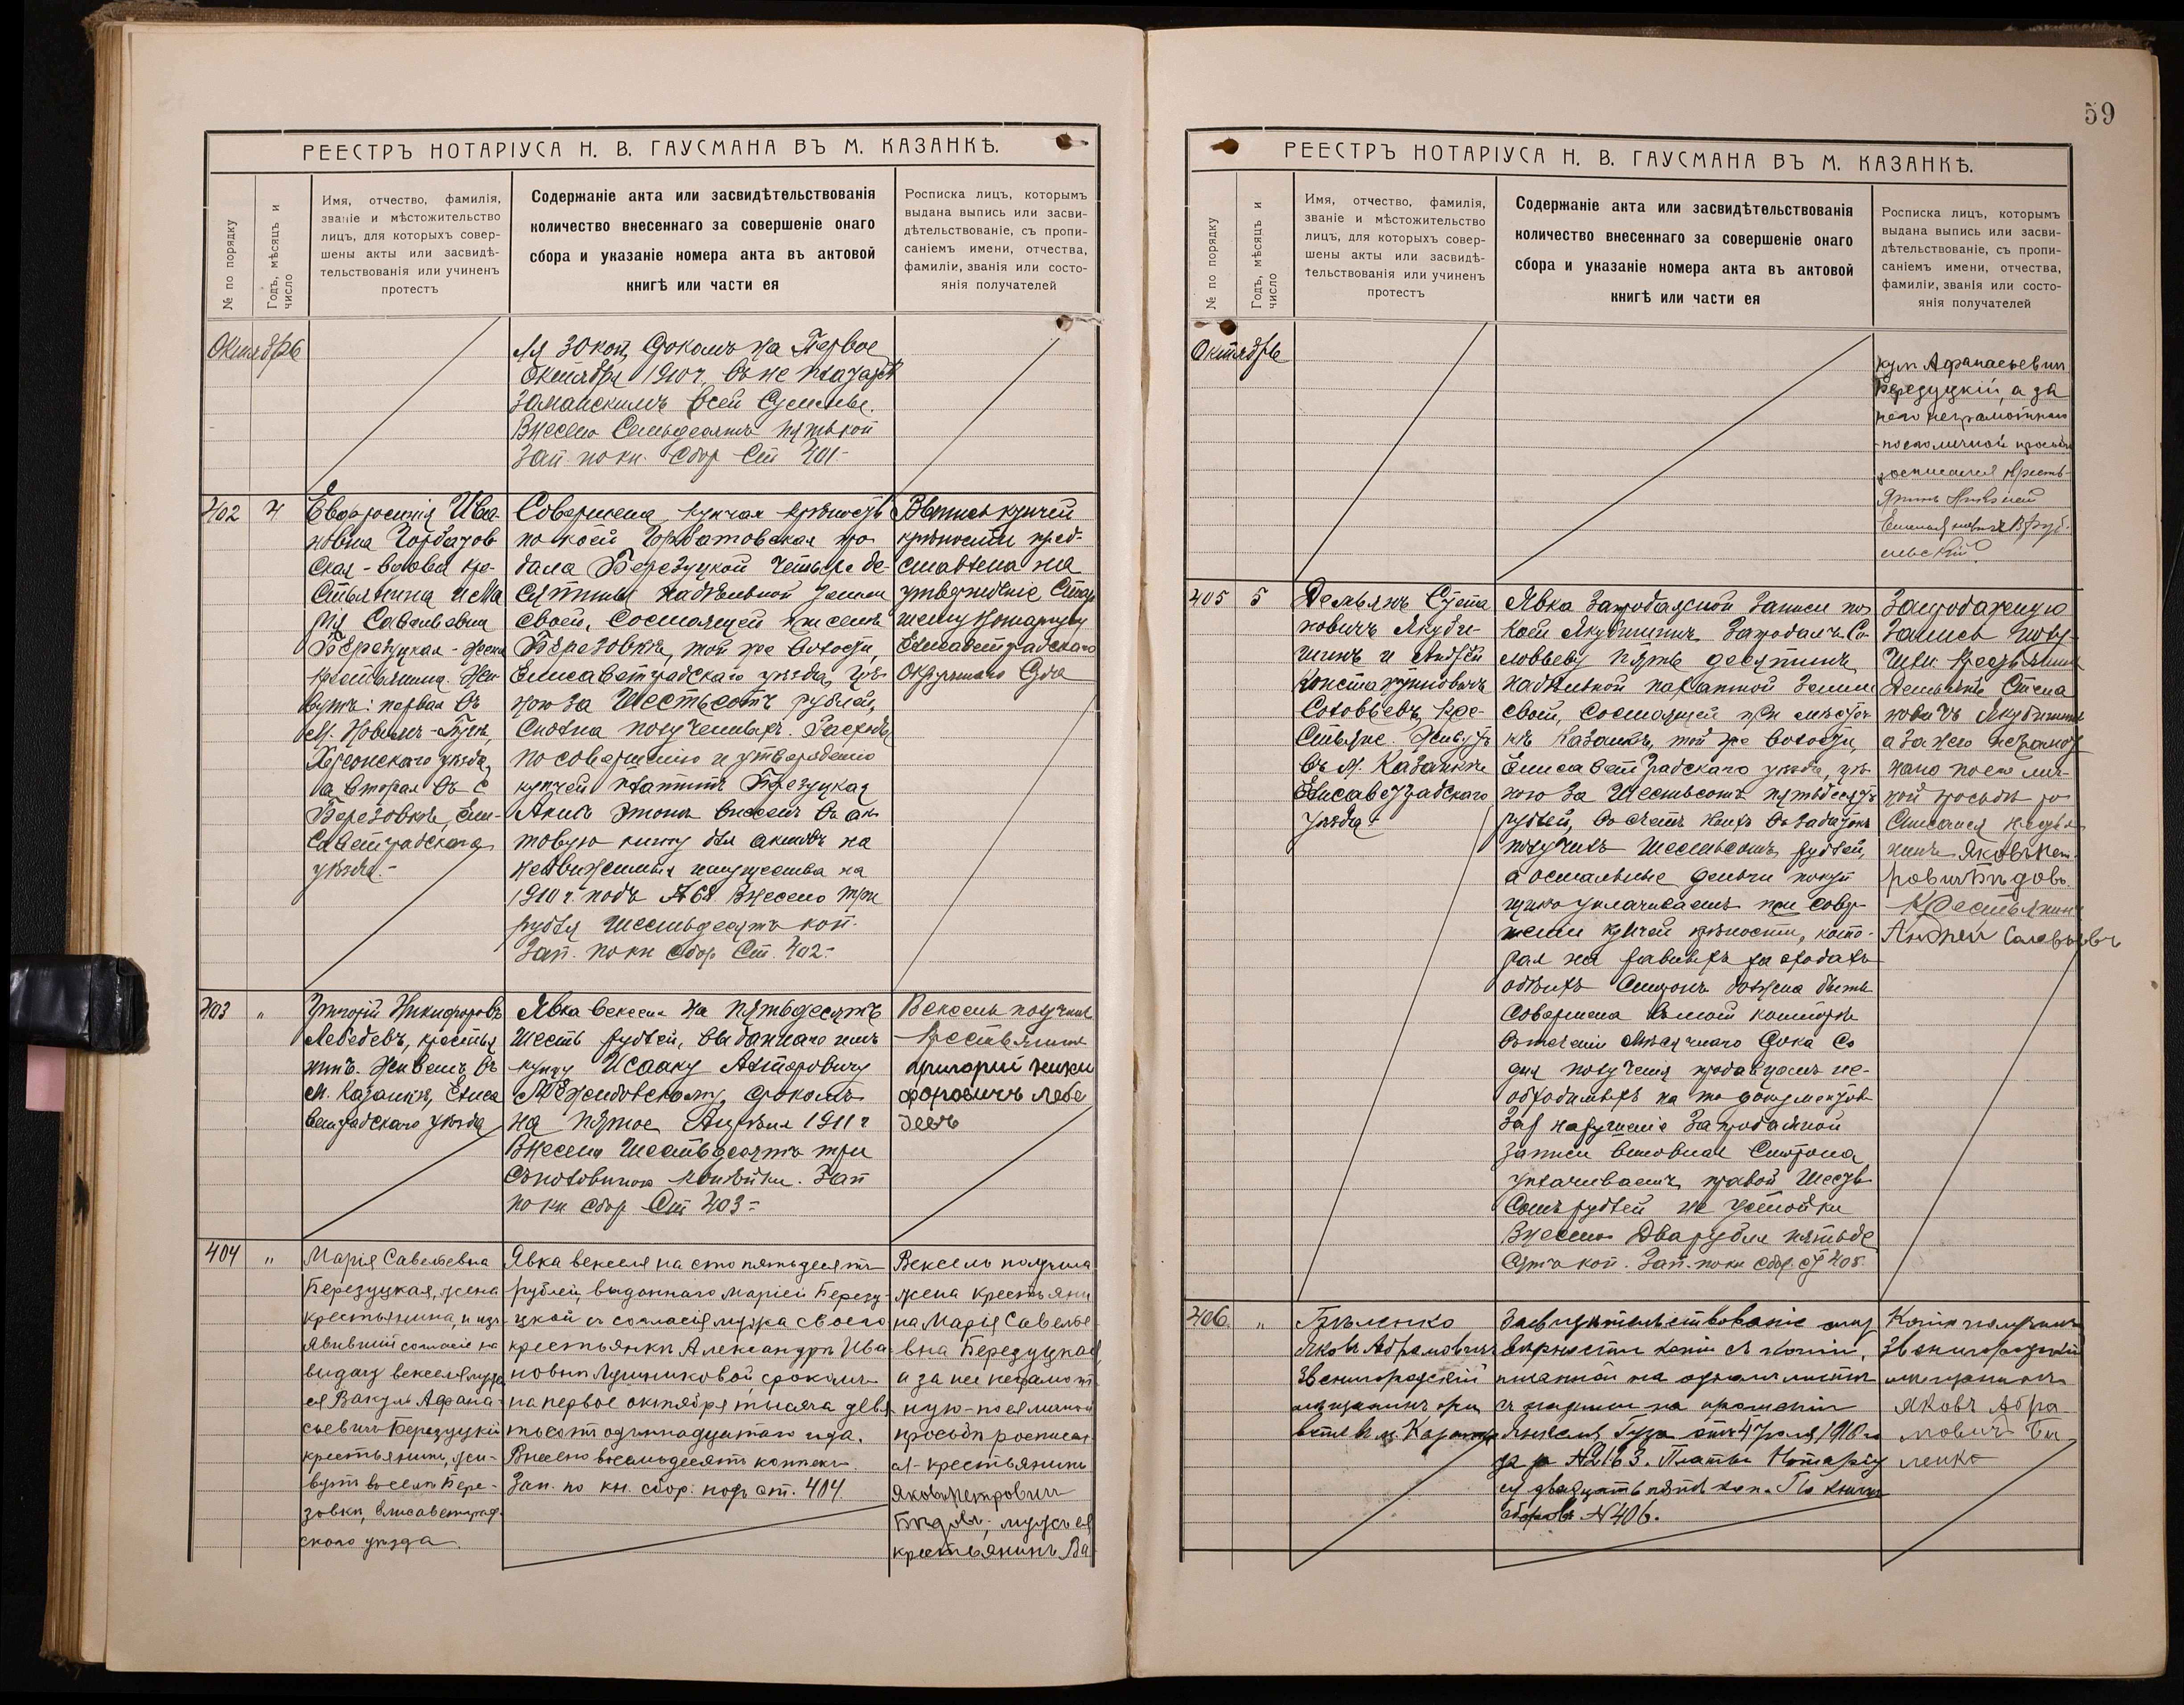 РЕЕСТРЪ НОТАРІУСА Н. В. ГАУСМАНА ВЪ М. КАЗАНКѢ.
№ по порядку
Годъ, мѣсяцъ и число
Имя, отчество, фамилія,
званіе и мѣстожительство
лицъ, для которыхъ совер-
шены акты или засвидѣ-
тельствованія или учиненъ
протестъ
Содержаніе акта или засвидѣтельствованія
количество внесеннаго за совершеніе онаго
сбора и указаніе номера акта въ актовой
книгѣ или части ея
Росписка лицъ, которымъ
выдана выпись или засви-
дѣтельствованіе, съ пропи-
саніемъ имени, отчества,
фамиліи, званія или состо-
янія получателей
Октябрь
ля 30 коп, срокомъ на Первое
Октября 1910 г. въ не платежѣ
Заманскимъ всей Суммы.
Внесено Семьдесятъ пять коп
Зап. по кн. Сбор Ст 401.-
402
4
Евфросинія Ива-
новна Горбатов
ская - вдова кре-
стьянина и Ма
рія Савельевна
Березуцкая - жена
крестьянина. Жи
вутъ: первая въ
М. Новомъ-Бугѣ,
Херсонскаго уѣзда,
а вторая въ с.
Березовкѣ, Ели-
саветградскаго
уѣзда.-
Совершена купчая крѣпость
по коей Горбатовская про
дала Березуцкой четыре де-
сятины надѣльной земли
своей, состоящей при селѣ
Березовкѣ, той же волости,
Елисаветградскаго уѣзда, цѣ-
ною за Шестьсотъ рублей,
Сполна полученныхъ. Расходы
по совершенію и утвержденію
купчей платитъ Березуцкая
Актъ этотъ внесенъ въ ак-
товую книгу для актовъ на
недвижимыя имущества на
1910 г. подъ № 68. Внесено три
рубля шестьдесятъ коп.
Зап. по кн Сбор Ст. 402-
Выпись купчей
крѣпости пред-
ставлена на
утвержденіе Стар
шему Нотаріусу
Елисаветградскаго
Окружнаго Суда
403
"
Григорій Никифоровъ
Лебедевъ, крестья
нинъ. Живетъ въ
М. Казанкѣ, Елиса
ветградскаго уѣзда
Явка векселя на пятьдесятъ
шесть рублей, выданнаго имъ
купцу Исааку
срокомъ
на Пятое Апрѣля 1911 г
Внесено Шестьдесятъ три
съ половиною копѣйки. Зап
по кн сбор Ст 403-
Вексель получилъ
крестьянинъ
Григорий Ники
форовичъ Лебе
девъ
404
"
Марія Савельевна
Березуцкая, жена
крестьянина, и изъ-
явившій согласіе на
выдачу векселя мужъ
ея Вакулъ Афана-
сьевичъ Березуцкій
крестьянинъ, жи-
вутъ въ селѣ Бере-
зовкѣ, Елисаветград-
скаго уѣзда.
Явка векселя на сто пятьдесятъ
рублей, выданнаго Маріей Березу-
цкой съ согласія мужа своего
крестьянкѣ Александрѣ Ива-
новнѣ Лушниковой, срокомъ
на первое октября тысяча девя
тьсотъ одиннадцатаго года.
Внесено восемьдесятъ копѣекъ.
Зап. по кн. сбор. подъ ст. 404.
Вексель получила
жена крестьяни
на Марія Савелье
вна Березуцкая,
а за нее неграмот
ную - по ея личной
просьбѣ росписал
ся - крестьянинъ
Яковъ Петровичъ
Бѣдовъ; мужъ ея
крестьянинъ Ва
59
РЕЕСТРЪ НОТАРІУСА Н. В. ГАУСМАНА ВЪ М. КАЗАНКѢ.
№ по порядку
Годъ, мѣсяцъ и число
Имя, отчество, фамилія,
званіе и мѣстожительство
лицъ, для которыхъ совер-
шены акты или засвидѣ-
тельствованія или учиненъ
протестъ
Содержаніе акта или засвидѣтельствованія
количество внесеннаго за совершеніе онаго
сбора и указаніе номера акта въ актовой
книгѣ или части ея
Росписка лицъ, которымъ
выдана выпись или засви-
дѣтельствованіе, съ пропи-
саніемъ имени, отчества,
фамиліи, званія или состо-
янія получателей
Октябрь
кулъ Афанасьевичъ
Березуцкій, а за
него неграмотнаго
по его личной просьбѣ
росписался кресть-
янинъ
405
5
Демьянъ Степа
новичъ Якуби-
шинъ и Андрей
Константиновичъ
Соловьевъ, кре-
стьяне. Живутъ
въ М. Казанкѣ
Елисаветградскаго
уѣзда.-
Явка Запродажной Записи по
коей Якубишинъ Запродалъ Со-
ловьеву пять десятинъ
надѣльной пахатной земли
своей, состоящей при мѣстеч-
кѣ Казанкѣ, той же волости,
Елисаветградскаго уѣзда, цѣ-
ною за Шестьсотъ пятьдесятъ
рублей, въ счетъ коихъ въ задатокъ
получилъ шестьсотъ рублей,
а остальные деньги покуп
щикъ уплачиваетъ при совер-
шеніи купчей крѣпости, кото-
рая на равныхъ расходахъ
обѣихъ Сторонъ должна быть
совершена въ моей конторѣ
въ теченіи мѣсячнаго Срока со
дня полученія продавцомъ не-
обходимыхъ на то документовъ
За нарушеніе Запродажной
Записи виновная Сторона
уплачиваетъ правой Шесть
сотъ рублей неустойки
Внесено Два рубля пятьде
сятъ коп. Зап. по кн сбор. ст 405.
Запродажную
Запись полу-
чили: Крестьянинъ
Демьянъ Степа
новичъ Якубишинъ
а за него неграмот
наго по его лич-
ной просьбѣ ро
списался крестья
нинъ Яковъ Пет-
ровичъ Бѣдовъ.
Крестьянинъ
Андрей Саловьевъ
406.
"
Бѣленко
Яковъ Абрамовичъ
Звенигородскій
мѣщанинъ
Казанкѣ
Засвидѣтельствованіе
вѣрности копіи съ копіи,
писанной на одномъ листѣ
1910 г
за № 2163. Платы Нотаріу
су двадцать пять коп. По книгѣ
сборовъ № 406.
Копію получилъ
Звенигородскій
мѣщанинъ
Яковъ Абра
мовичъ Бѣ
ленко